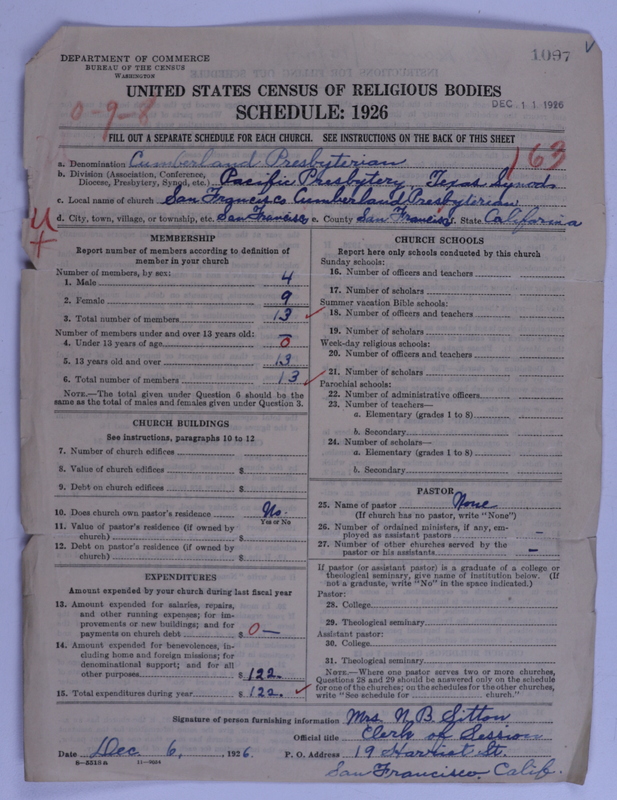 1097
DEPARTMENT OF COMMERCE
BUREAU OF THE CENSUS
WASHINGTON
UNITED STATES CENSUS OF RELIGIOUS BODIES
DEC 11 1926
0-9-8
SCHEDULE: 1926
FILL OUT A SEPARATE SCHEDULE FOR EACH CHURCH. SEE INSTRUCTIONS ON THE BACK OF THIS SHEET
163
a. Denomination Cumberland Presbyterian
b. Division (Association, Conference, Diocese, Presbytery, Synod, etc.) Pacific Presbytery, Texas Synod
c. Local name of church San Francisco Cumberland Presbyterian
d. City, town, village, or township, etc. San Francisco e. County San Francisco f. State California
MEMBERSHIP
Report number of members according to definition of
member in your church
Number of members, by sex:
1. Male 4
2. Female 9
3. Total number of members 13
Number of members under and over 13 years old:
4. Under 13 years of age 0
5. 13 years old and over 13
6. Total number of members 13
NOTE.—The total given under Question 6 should be the
same as the total of males and females given under Question 3.
CHURCH BUILDINGS
See instructions, paragraphs 10 to 12
7. Number of church edifices
8. Value of church edifices $
9. Debt on church edifices $
10. Does church own pastor's residence No
Yes or No
11. Value of pastor's residence (if owned by
church) $
12. Debt on pastor's residence (if owned by
church) $
EXPENDITURES
Amount expended by your church during last fiscal year
13. Amount expended for salaries, repairs,
and other running expenses; for im-
provements or new buildings; and for
payments on church debt $ 0 —
14. Amount expended for benevolences, in-
cluding home and foreign missions; for
denominational support; and for all
other purposes $ 122.
15. Total expenditures during year $ 122.
CHURCH SCHOOLS
Report here only schools conducted by this church
Sunday schools:
16. Number of officers and teachers
17. Number of scholars
Summer vacation Bible schools:
18. Number of officers and teachers
19. Number of scholars
Week-day religious schools:
20. Number of officers and teachers
21. Number of scholars
Parochial schools:
22. Number of administrative officers
23. Number of teachers—
a. Elementary (grades 1 to 8)
b. Secondary
24. Number of scholars—
a. Elementary (grades 1 to 8)
b. Secondary
PASTOR
25. Name of pastor None
(If church has no pastor, write "None")
26. Number of ordained ministers, if any, em-
ployed as assistant pastors –
27. Number of other churches served by the
pastor or his assistants –
If pastor (or assistant pastor) is a graduate of a college or
theological seminary, give name of institution below. (If
not a graduate, write "No" in the space indicated.)
Pastor:
28. College
29. Theological seminary
Assistant pastor:
30. College
31. Theological seminary
NOTE.—Where one pastor serves two or more churches,
Questions 28 and 29 should be answered only on the schedule
for one of the churches; on the schedules for the other churches,
write "See schedule for church."
Signature of person furnishing information Mrs. N. B. Sitton
Official title Clerk of Session
Date Dec 6, 1926. P. O. Address 19 Harriet St.
8-5518a 11-9034
San Francisco, Calif.